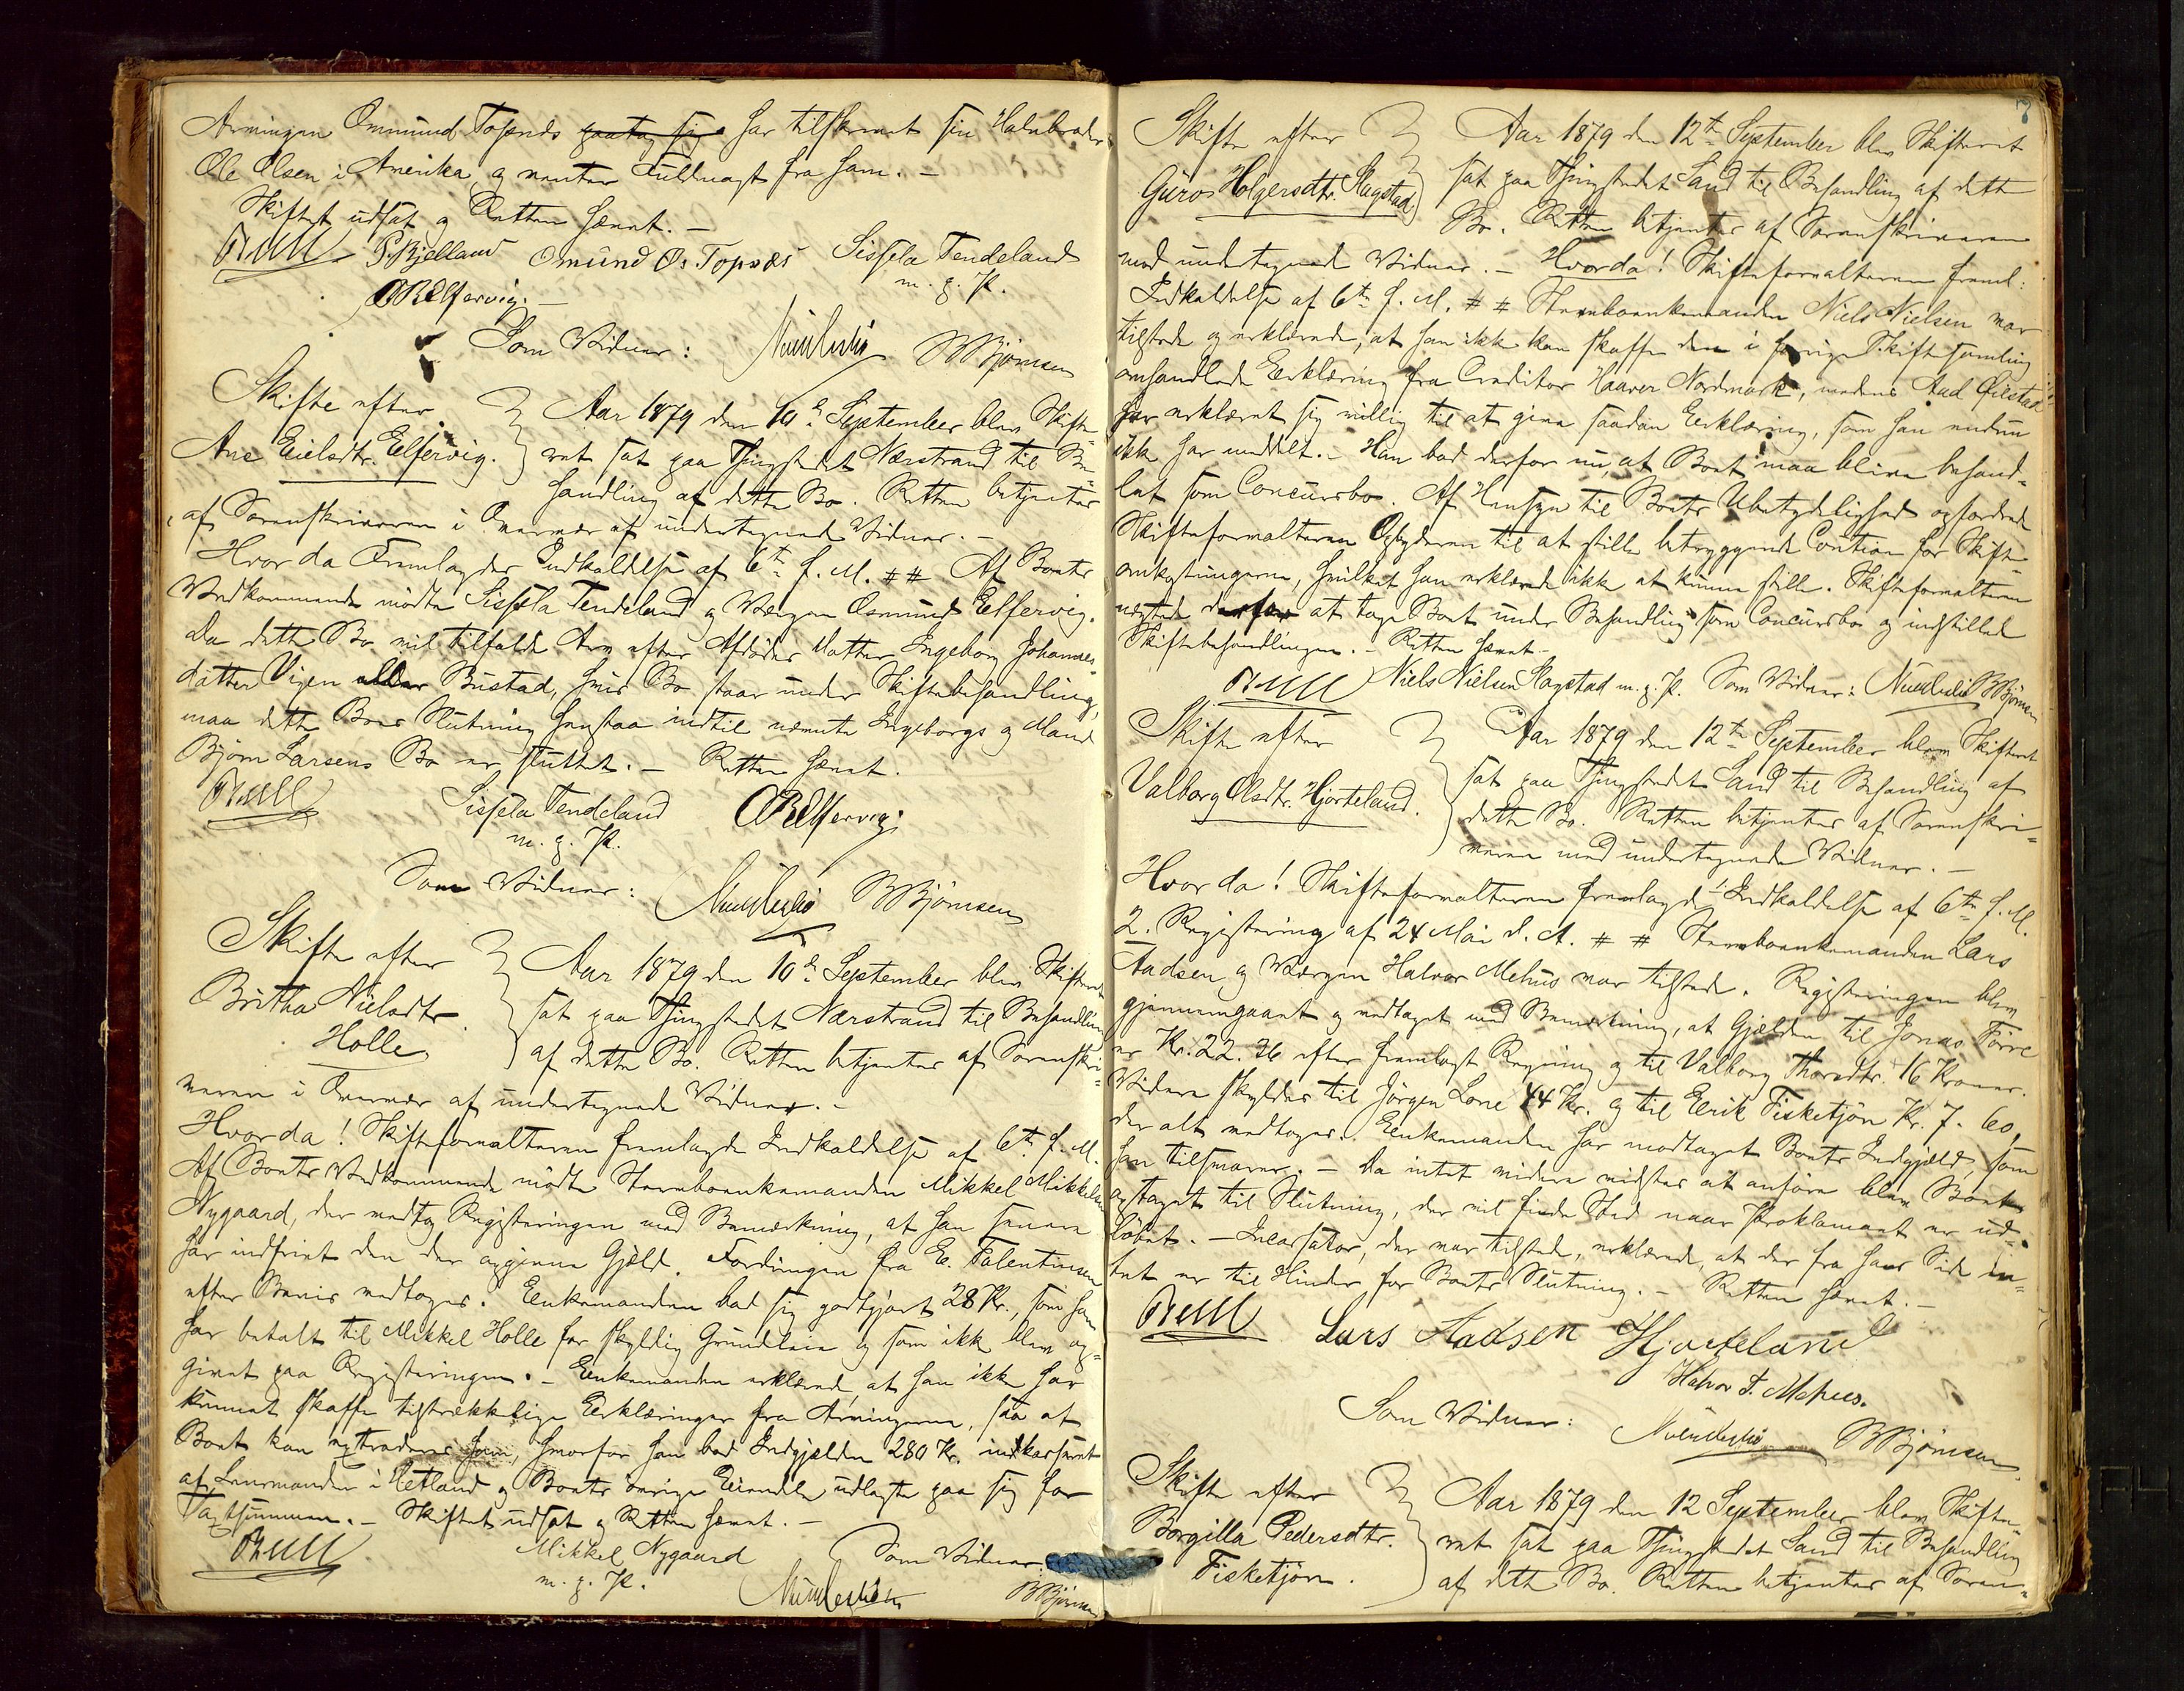 Arvingen Ommund Topnæs paatog sig har tilskrevet sin Halvbroder
Ole Olsen i Amerika og venter Fuldmagt fra ham. –
Skiftet udsat og Retten hævet. –
P. Bjelland Omund Os. Topnæs Sissela Tendeland
m. g. P.
OBElfervig. –
Som Vidner: BBjørnsen
Skifte efter
Ane Eielsdtr. Elfervig.
Aar 1879 den 10de September blev Skifte-
ret sat paa Thingstedet Nærstrand til Be-
handling af dette Bo. Retten betjentes
af Sorenskriveren i Overvær af undertegnede Vidner. –
Hvor da Fremlagdes Indkaldelse af 6te f. M. ## Af Boets
Vedkommende mødte Sissela Tendeland og Værgen Osmund Elfervig.
Da dette Bo vil tilfalde Arv efter Afdødes Moder Ingeborg Johannes-
datter Vigen eller Bustad, hvis Bo staar under Skiftebehandling,
maa dette Boes Slutning henstaa indtil nævnte Ingeborgs og Mand
Bjørn Larsens Bo er sluttet. – Retten hævet.
Sissela Tendeland OBElfervig
m. g. P.
Som Vidner: BBjørnsen
Skifte efter
Britha Nielsdtr.
Holle
Aar 1879 den 10de September blev Skifteret
sat paa Thingstedet Nærstrand til Behandling
af dette Bo. Retten betjentes af Sorenskri-
veren i Overvær af undertegnede Vidner. –
Hvor da! Skifteforvalteren fremlagde Indkaldelse af 6te f. M.
Af Boets Vedkommende mødte Stervboenkemanden Mikkel Mikkelsen
Nygaard, der vedtog Registeringen med Bemærkning, at han senere
har indfriet den der opgivne Gjæld. Fordringen fra E. Valentinsen
efter Bevis vedtoges. Enkemanden bad sig godtgjort 28 Kr., som han
har betalt til Mikkel Holle for skyldig Grundleie og som ikke blev op-
givet paa Registeringen. – Enkemanden erklærede, at han ikke har
kunnet skaffe tilstrækkelige Erklæringer fra Arvingerne, saa at
Boet kan extraderes ham, hvorfor han bad Indgjælden 280 Kr. indkasseret
af Lensmanden i Hetland og Boets øvrige Eiendele udlagte paa sig for
Taxtsummen. – Skiftet udsat og Retten hævet. –
Mikkel Nygaard Som Vidner:
m. g. P. BBjørnsen
Skifte efter
Guro Holgersdtr. Slagstad
Aar 1879 den 12te September blev Skifteret
sat paa Thingstedet Sand til Behandling af dette
Bo. Retten betjentes af Sorenskriveren
med undertegnede Vidner. – Hvor da! Skifteforvalteren freml:
Indkaldelse af 6te f. M. ## Stervboenkemanden Niels Nielsen var
tilstede og erklærede, at han ikke kan skaffe den i forrige Skiftesamling
omhandlede Erklæring fra Creditor Haaver Nordmark, medens Aad Øiestad
har erklæret sig villig til at give saadan Erklæring, som han endnu
ikke har meddelt. – Han bad derfor nu, at Boet maa blive behand-
let som Concursbo. Af Hensyn til Boets Ubetydelighed opfordrede
Skifteforvalteren Opbyderen til at stille betryggende Caution for Skifte-
omkostningerne, hvilket han erklærede ikke at kunne stille. Skifteforvalteren
nægtede derfor at tage Boet under Behandling som Concursbo og indstillede
Skiftebehandlingen. – Retten hævet –
Niels Nielsen Slagstad m. g. P. Som Vidner: BBjørnsen
Skifte efter
Valborg Olsdtr. Hjorteland.
Aar 1879 den 12te September blev Skifteret
sat paa Thingstedet Sand til Behandling af
dette Bo. Retten betjentes af Sorenskri-
veren med undertegnede Vidner. –
Hvor da! Skifteforvalteren fremlagde 1. Indkaldelse af 6te f. M.
2. Registering af 24 Mai d. A. ## Stervboenkemanden Lars
Aadsen og Værgen Halvor Mehus var tilstede. Registeringen blev
gjennemgaaet og vedtaget med Bemærkning, at Gjælden til Jonas Førre
er Kr. 22.36 efter fremlagt Regning og til Valborg Thorsdtr. 16 Kroner.
Videre skyldes til Jørgen Lone 44 Kr. og til Eerik Fisketjøn Kr. 7. 60,
der alt vedtoges. Enkemanden har modtaget Boets Indgjæld, som
han tilsvarer. – Da intet videre vidstes at anføre blev Boet
optaget til Slutning, der vil finde Sted naar Proklamaet er ud-
løbet. – Incassator, der var tilstede, erklærede, at der fra hans Side in-
tet er til Hinder for Boets Slutning. – Retten hævet. –
Lars Aadsen Hjorteland
Halvor T. Mehus.
Som Vidner: BBjørnsen
Skifte efter
Borgilla Pedersdtr.
Fisketjøn.
Aar 1879 den 12 September blev Skifte-
ret sat paa Thingstedet Sand til Behandling
af dette Bo. Retten betjentes af Soren-